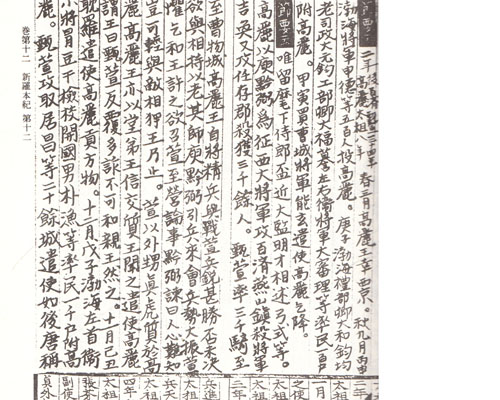 高麗太祖八年 春三月高麗王幸西京。秋九月丙申
渤海將軍申德等五百人投高麗。庚子渤海禮部卿大和鈞均
老司政大元鈞工部卿大福謩左右衛將軍大審理等率民一百戶
附高麗。甲寅買曹城將軍能玄遣使高麗乞降。
節要 唯留麾下侍郎盃近大監明才相述弓式等。
高麗以庾黔弼爲征西大將軍攻百濟燕山鎭殺將軍
吉奐又攻任存郡殺獲三千餘人。甄萱率三千騎至
至曹物城高麗王自將精兵與戰萱兵銳甚勝否未決
欲與相持以老其師庾黔弼引兵來會兵勢大振萱
懼乞和王計之欲召萱至營論事黔弼諫曰人心難知
豈可輕與敵相狎王乃止。萱以外甥真虎質於高
高麗王亦以堂弟王信交質王聞之遣使高麗
謂王曰甄萱反覆多詐不可和親王然之。十一月己丑
耽羅遣使高麗貢方物。十二月戊子渤海左首衛
小將冒豆干檢校開國男朴漁等率民一千戶附高
麗。甄萱攻取居昌等二十餘城遣使如後唐稱
卷第十二 新羅本紀 第十二